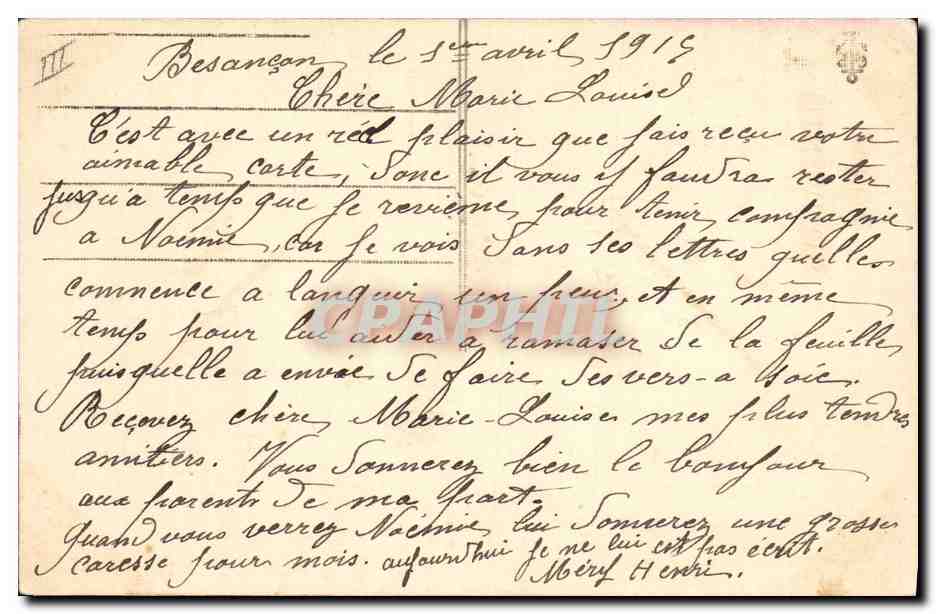 III
Besançon le 1er avril 1915
Chère Marie Louise
C'est avec un réel plaisir que jais reçu votre
aimable carte, donc il vous y faudra rester
jusqu'a temps que je revième pour tenir compagnie
a Noémie, car je vois dans ses lettres quelle
commence a languir un peu, et en même
temps pour lui aider a ramaser de la feuille
puisquelle a envie de faire des vers-a soie.
Reçovez chère Marie-Louise mes plus tendres
amitiers. Vous donnerez bien le bonjour
aux parents de ma part.
Quand vous verrez Noémie lui donnerez une grosse
caresse pour mois. aujourdhui je ne lui est pas écrit.
Méry Henri.
CPAPHIL